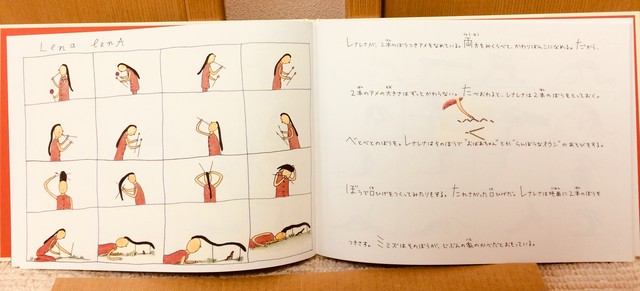 Lena lenA
レナレナが、2本のぼうつきアメをなめている。両方をみくらべて、かわりばんこになめる。だから、
2本のアメの大きさはずっとかわらない。たべおわると、レナレナは2本のぼうをとっておく。
べとべとのぼうを。レナレナはそのぼうで"おばあちゃん"とか"らんぼうなオウジ"のあそびをする。
ぼうで口ひげをつくってみたりもする。たれさがった口ひげだ。レナレナは地面に2本のぼうを
つきさす。ミミズはそのぼうが、じぶんの家のかべだとおもっている。